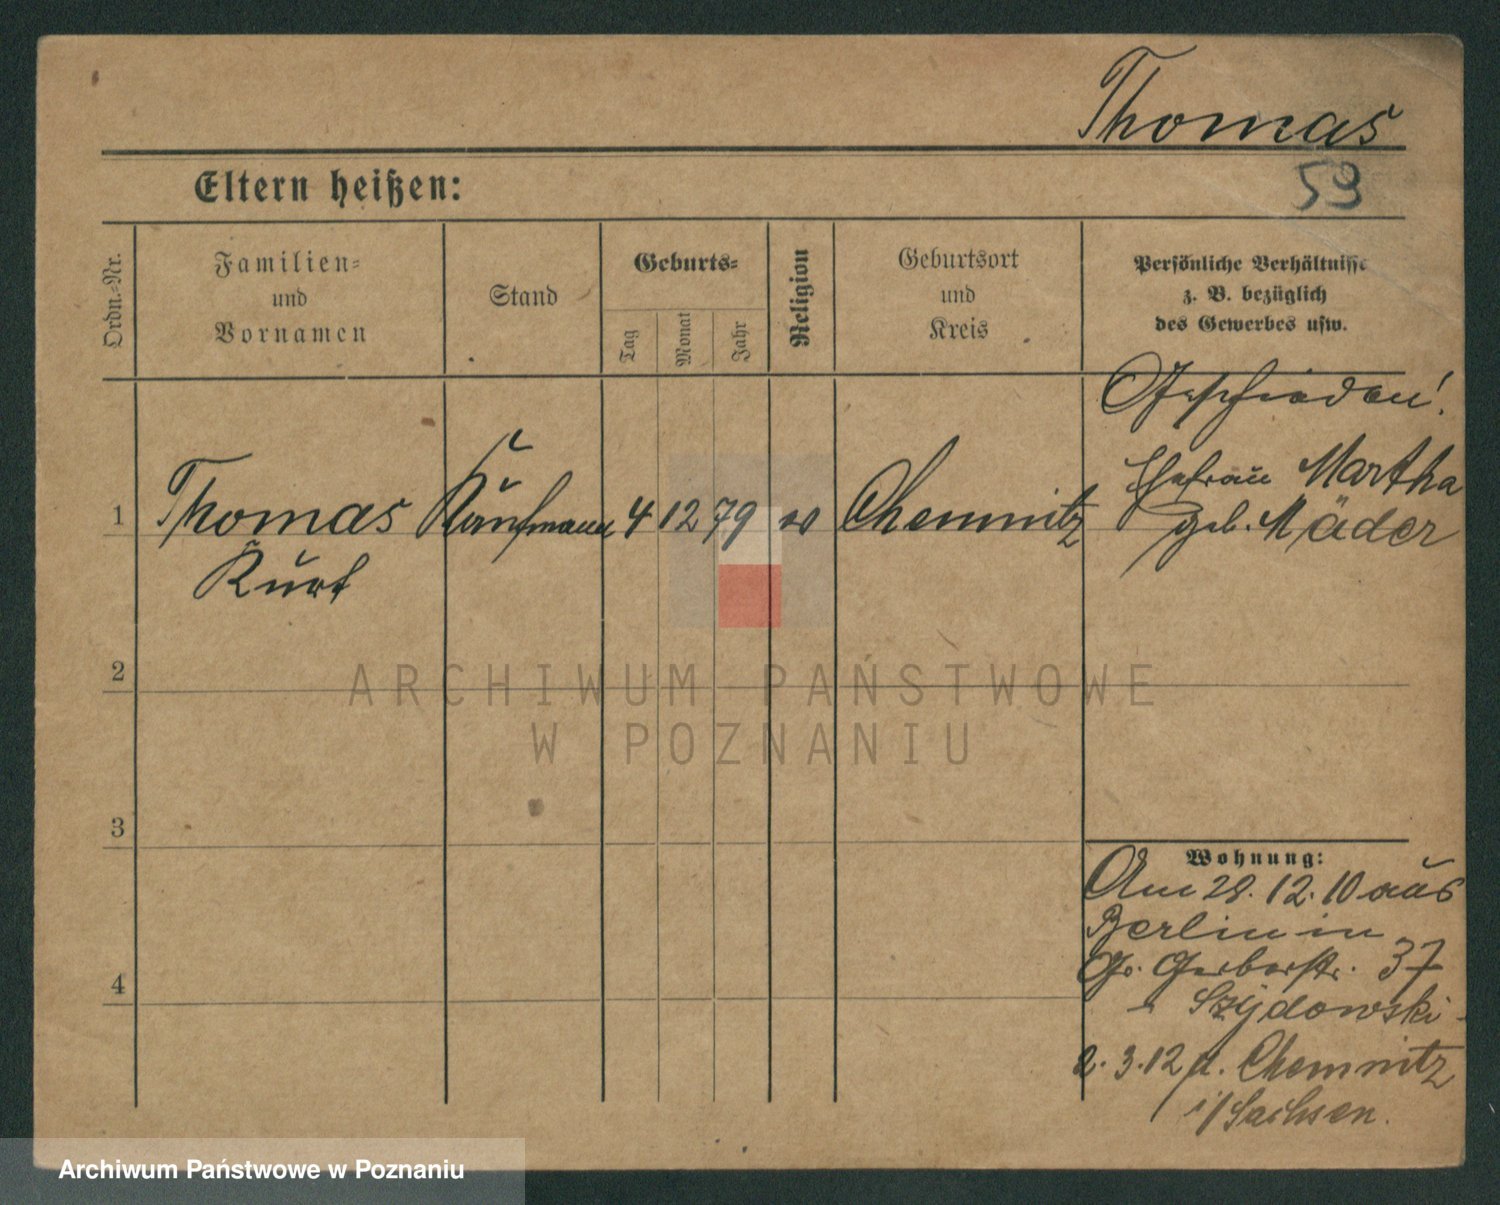 Thomas
59
Eltern heißen:
Ordn.-Nr.
Familien-
und
Vornamen
Stand
Geburts-
Tag
Monat
Jahr
Religion
Geburtsort
und
Kreis
Persönliche Verhältnisse
z. B. bezüglich
des Gewerbes usw.
Geschieden!
Ehefrau Martha
geb. Mäder
1 Thomas Kaufmann 4 12 79 Chemnitz
Kurt
2
3
4
Wohnung:
Am 28. 12. 10 aus
Berlin in
Gr. Gerberstr. 37
Szÿdowski -
2. 3. 12 n. Chemnitz
i/Sachsen.
ARCHIWUM PAŃSTWOWE
W POZNANIU
Archiwum Państwowe w Poznaniu